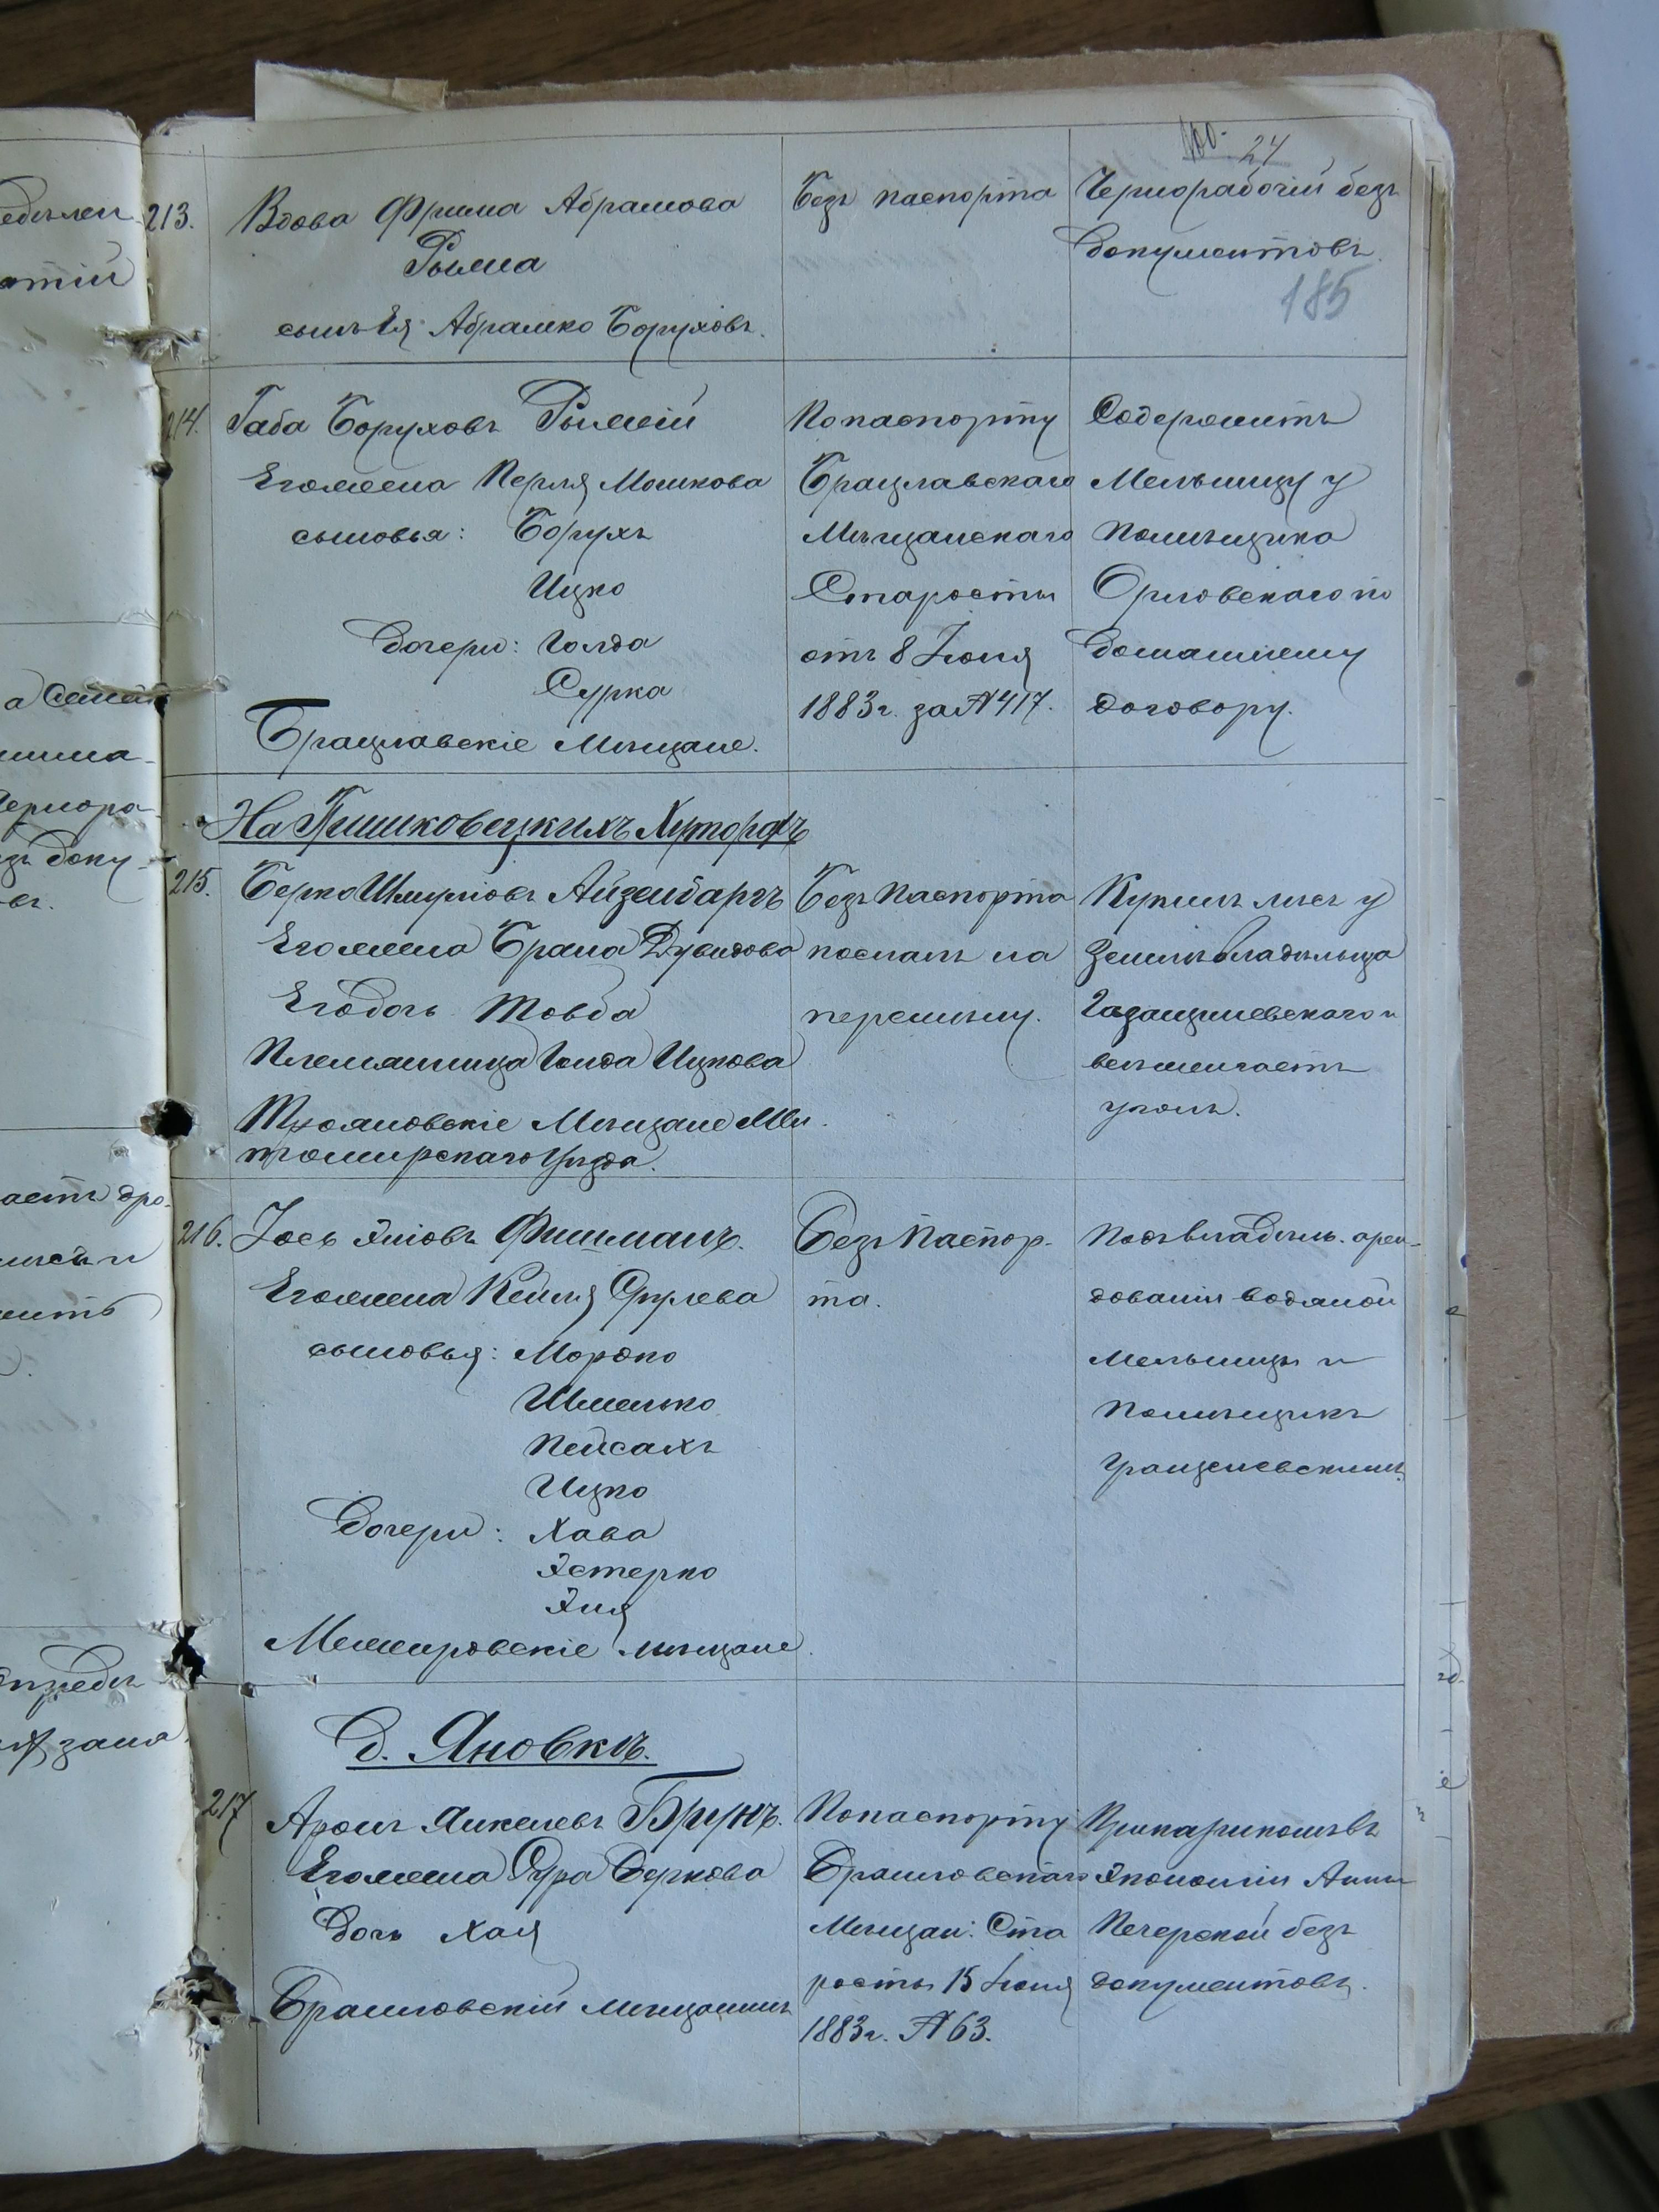 24
213. Вдова Фрима Абрамова
Рымна
сынъ Ея Абрамко Боруховъ.
Безъ паспорта
Чернорабочій безъ
документовъ.
185
214. Габа Боруховъ Рымній
Его жена Перля Мошкова
сыновья: Борухъ
Ицко
дочери: Голда
Сурка
Брацлавскіе Мѣщане.
По паспорту
Брацлавскаго
Мѣщанскаго
Старосты
отъ 8 Іюня
1883 г. за № 417.
Содержитъ
Мельницу у
Помѣщика
Орловскаго по
домашнему
договору.
На Пишковецкихъ Хуторахъ
215. Берко Шмуліовъ Айзенбаргъ
Его жена Брана Дувидова
Его дочь Товба
Племянница Гинда Ицкова
Трояновскіе Мѣщане Жи
томирскаго Уѣзда.
Безъ Паспорта
посланъ на
перемѣну.
Купилъ лѣсъ у
Землевладѣльца
и
выжигаетъ
уголь.
216. Іось Эліовъ Фишманъ.
Его жена Кейля Срулева
сыновья: Мордко
Шмелько
Пейсахъ
Ицко
Дочери: Хава
Эстерко
Эля
Межировскіе мѣщане.
Безъ Паспор-
та.
Подъ владѣль. арен-
дованія водяной
Мельницы и
Помѣщикъ
д. Яновкѣ.
217 Аронъ Янкелевъ Брунъ.
Его жена Сура Беркова
Дочь Хая
Браиловскій мѣщанинъ
По паспорту
Браиловскаго
Мѣщан: Ста
росты 15 Іюня
1883 г. № 63.
Экономіи Анны
Печерской безъ
документовъ.